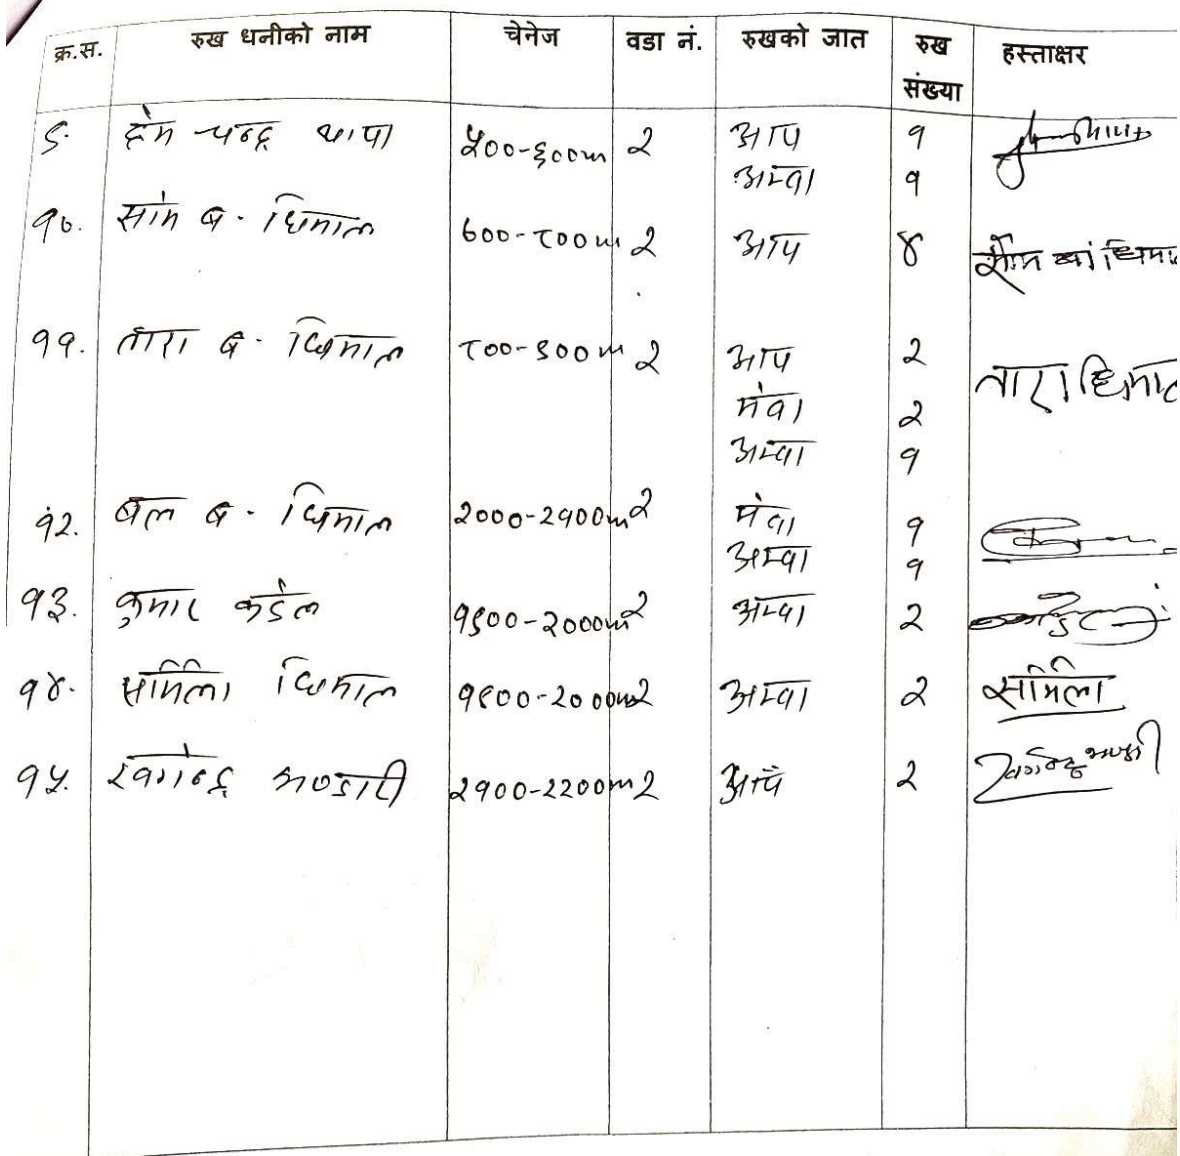 क्र.स. रुख धनीको नाम चेनेज वडा नं. रुखको जात रुख संख्या हस्ताक्षर
९. चन्द्र थापा ५००-६००m २ आप १
अम्वा १
१०. सोम ब. धिमाल ७००-८००m २ आप ४ सोम धिमाल
११. तारा ब. धिमाल ८००-९००m २ आप २ तारा धिमाल
मेवा २
अम्वा १
१२. बल ब. धिमाल २०००-२१००m २ मेवा १
अम्वा १
१३. कुमार कडेल १९००-२०००m २ अम्वा २
१४. सर्मिला धिमाल १९००-२०००m २ अम्वा २ सर्मिला
१५. खगेन्द्र भण्डारी २१००-२२००m २ आँप २ खगेन्द्र भण्डारी